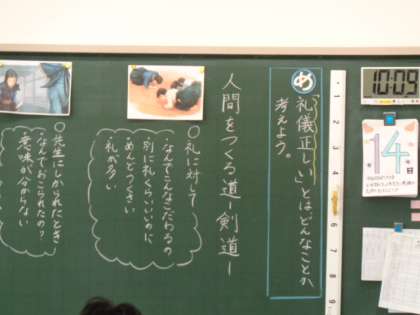 め
「礼儀正しい」とはどんなことか
考えよう。
人間をつくる道 ー剣道ー
○礼に対して
・なんでこんなにこだわるの
別に礼くらいいいのに
・めんどうくさい
・礼が多い
○先生にしかられたとき
・なんでおこられたの？
・意味が分からない
10:09
14日
1
2
3
4
5
6
7
8
9